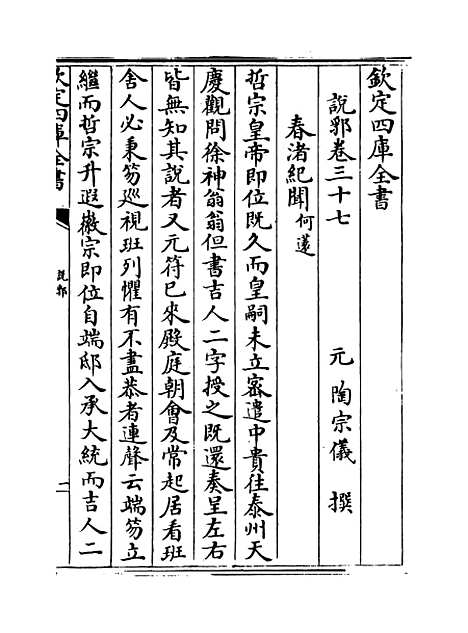 欽定四庫全書
說郛卷三十七
元 陶宗儀 撰
春渚紀聞何薳
哲宗皇帝即位既久而皇嗣未立密遣中貴往泰州天
慶觀問徐神翁翁但書吉人二字授之既還奏呈左右
皆無知其說者又元符已來殿庭朝會及常起居看班
舍人必秉笏巡視班列懼有不盡恭者連聲云端笏立
繼而哲宗升遐徽宗即位自端邸入承大統而吉人二
欽定四庫全書
說郛